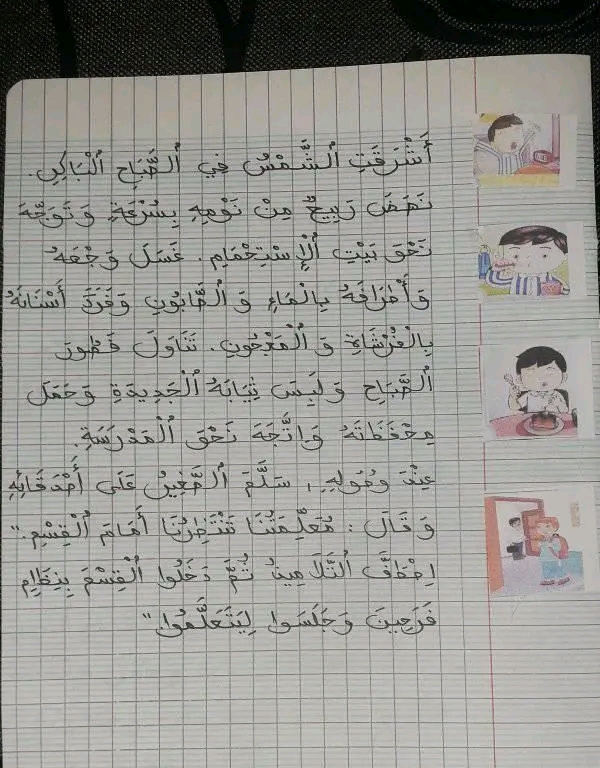 أَشْرَقَتِ الشَّمْسُ فِي الصَّبَاحِ الْبَاكِرِ.
نَهَضَ رَبِيعٌ مِنْ نَوْمِهِ بِسُرْعَةٍ وَتَوَجَّهَ
نَحْوَ بَيْتِ الْإِسْتِحْمَامِ. غَسَلَ وَجْهَهُ
وَأَطْرَافَهُ بِالْمَاءِ وَالصَّابُونِ وَفَرَكَ أَسْنَانَهُ
بِالْفُرْشَاةِ وَالْمَعْجُونِ. تَنَاوَلَ فَطُورَ
الصَّبَاحِ وَلَبِسَ ثِيَابَهُ الْجَدِيدَةِ وَحَمَلَ
مِحْفَظَتَهُ وَاتَّجَهَ نَحْوَ الْمَدْرَسَةِ.
عِنْدَ وُصُولِهِ، سَلَّمَ الصَّغِيرُ عَلَى أَصْدِقَائِهِ
وَقَالَ: مُعَلِّمَتُنَا تَنْتَظِرُنَا أَمَامَ الْقِسْمِ."
اِصْطَفَّ التَّلَامِيذُ ثُمَّ دَخَلُوا الْقِسْمَ بِنِظَامٍ
فَرَحِينَ وَجَلَسُوا لِيَتَعَلَّمُوا"